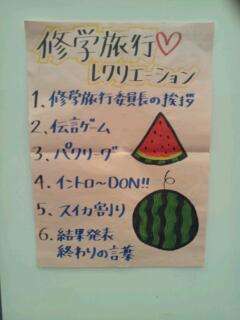 修学旅行♡
レクリエーション
1、修学旅行委員長の挨拶
2、伝言ゲーム
3、パクリーグ
4、イントロ〜DON!!
5、スイカ割り
6、結果発表
終わりの言葉